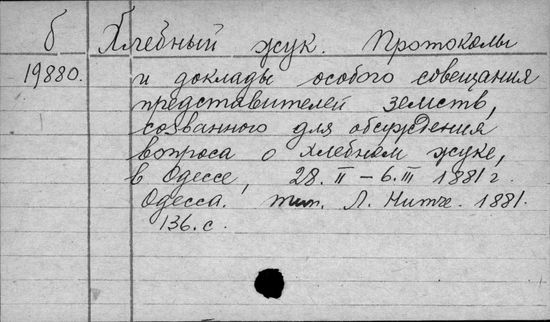 б Хлебный жук. Протоколы
19880. и доклады особого совещания
представителей земств,
созванного для обсуждения
вопроса о хлебном жуке,
в Одессе, 28.II – 6.III 1881 г.
Одесса. тип. Л. Нитче. 1881.
136. с.